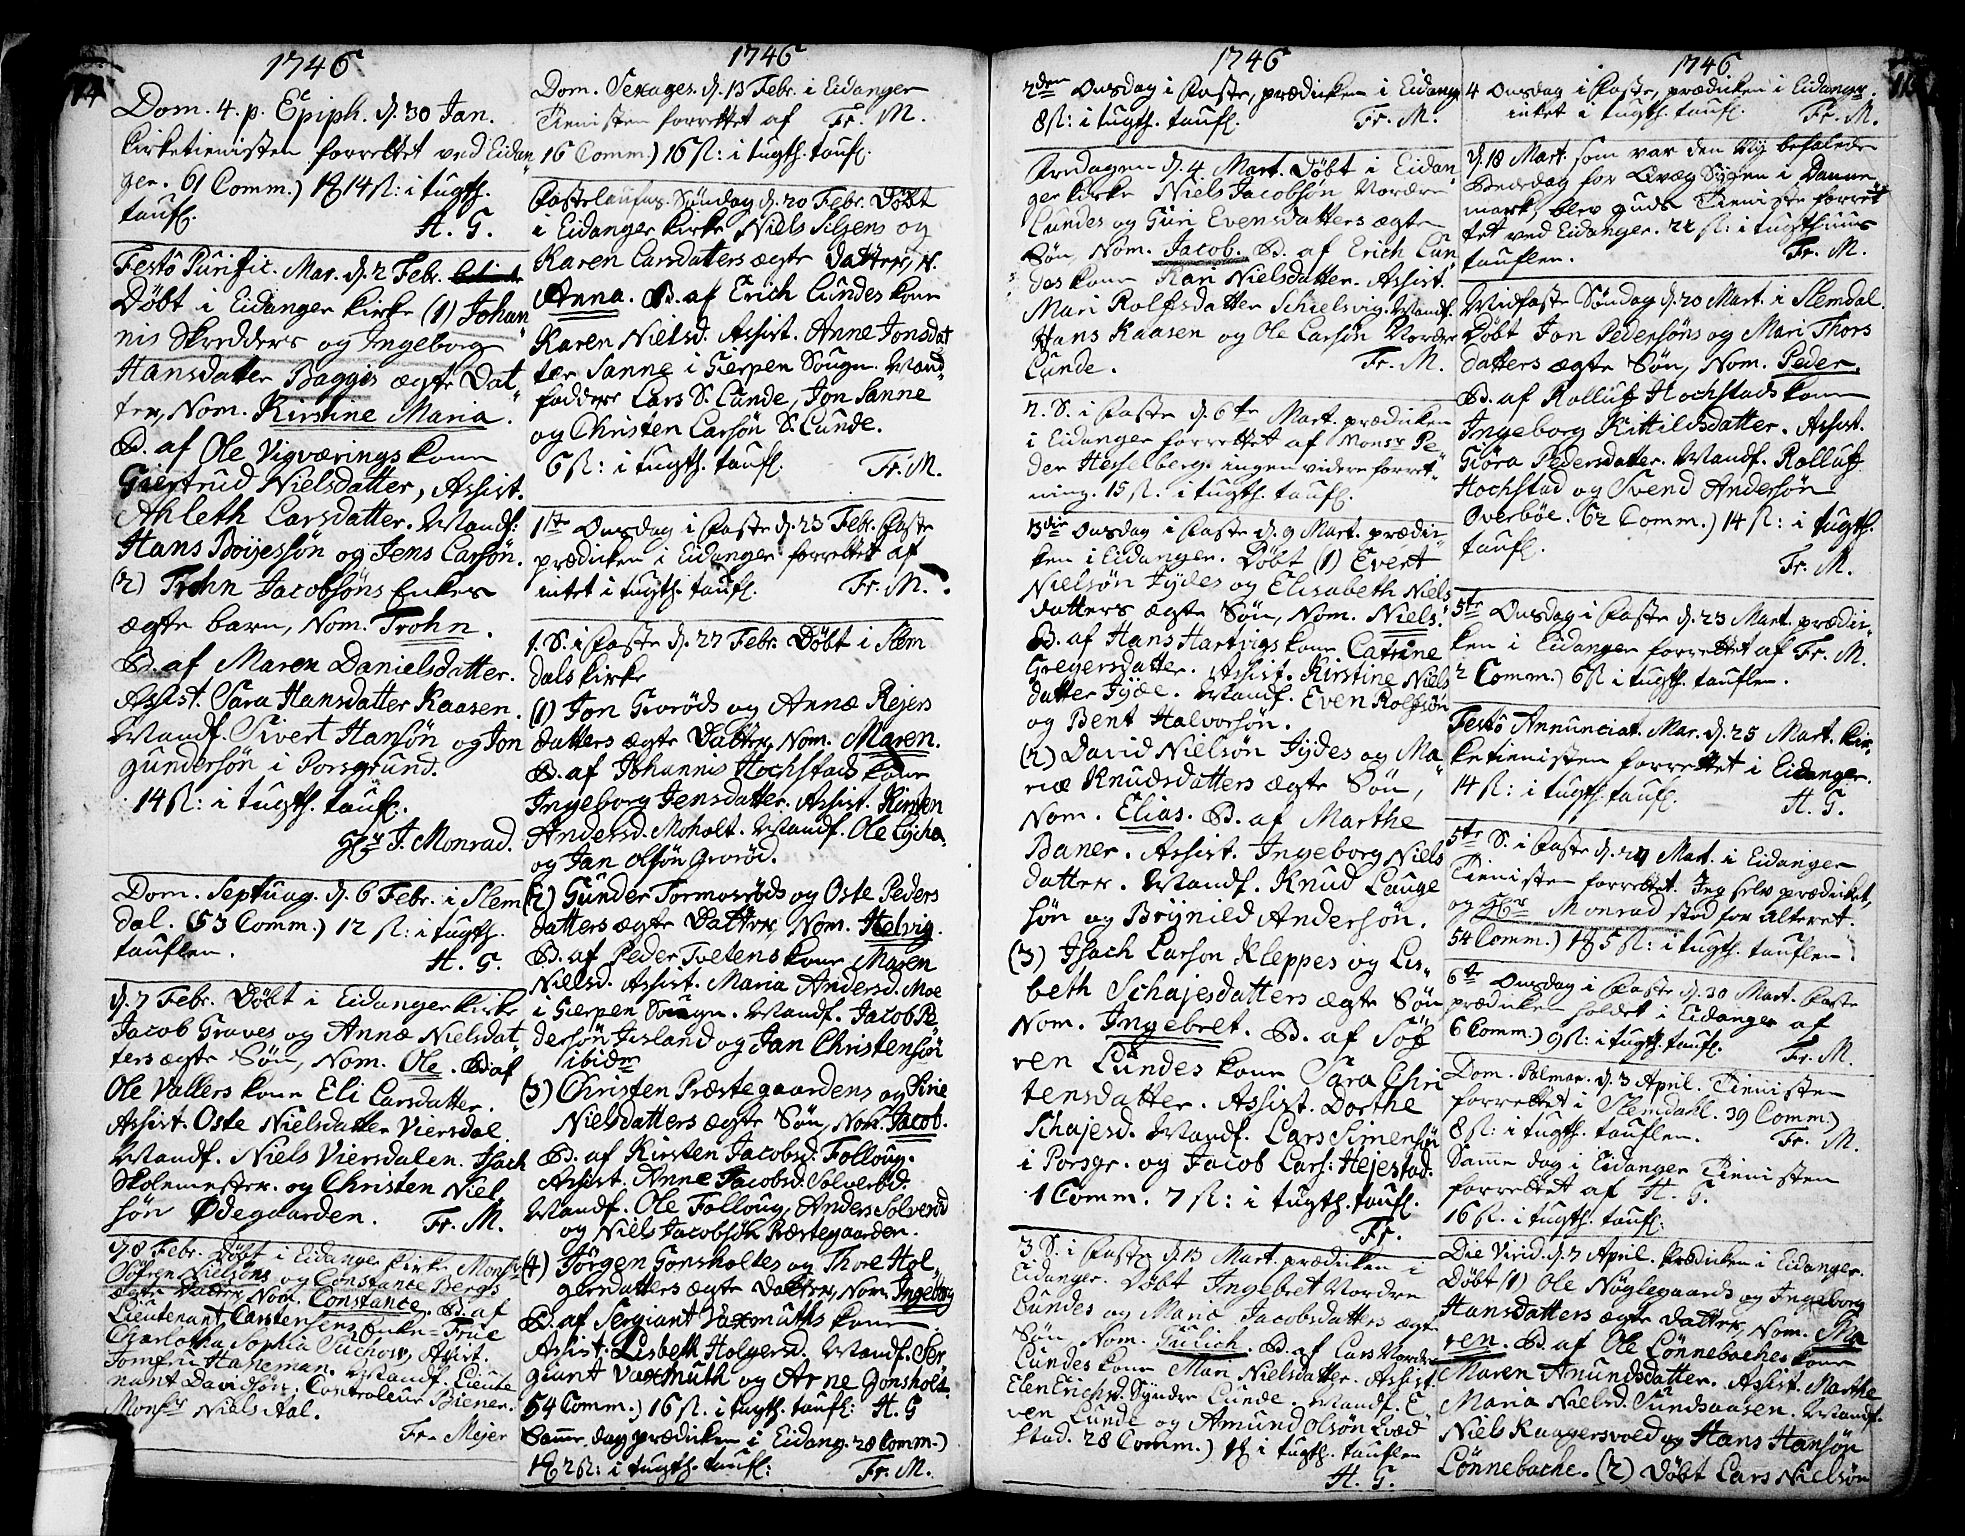 1746
Dom. 4. p. Epiph. d. 30 Jan.
Kirketienisten forrettet ved Eidan
ger. 61 Comm.) 14 sl: i tugth.
taufl.
H. G.
Festô Purific. Mar. d. 2 Febr.
Döbt i Eidanger kirke (1) Johan
nis Skredders og Ingeborg
Hansdatter Bagges ægte Dat
ter, Nom. Kirstine Maria.
B. af Ole Vigværings kone
Giertrud Nielsdatter, Assist.
Ahleth Larsdatter. Mandf:
Hans Boijessön og Jens Larsön.
(2) Trohn Jacobsöns Enkes
ægte barn, Nom. Trohn.
B. af Maren Danielsdatter.
Assist. Sara Hansdatter Kaasen.
Mandf. Sivert Hansön og Jon
gundersön i Porsgrund.
14 sl: i tugth. taufl.
Hr J. Monrad.
Dom. Septuag. d. 6 Febr. i Slem
dal. (53 Comm.) 12 sl: i tugth.
tauflen.
H. G.
d. 7 Febr. Döbt i Eidanger kirke
Jacob Graves og Annæ Nielsdat
ters ægte Sön, Nom. Ole. B. af
Ole Vallers kone Eli Larsdatter.
Assist. Oste Nielsdatter Viersdal.
Mandf. Niels Viersdalen. Isach
Skolemester. og Christen Niel
sön Ødegaarden.
Fr. M.
d. 8 Febr. Döbt i Eidanger kirke Monsr
Söfren Nielsöns og Constance Bergs
ægte Datter Nom. Constance. B. af
Lieutenant Carstensens Enke-Frue
Charlotha Sophia Suchow, Assist.
Jomfru Haneman. Mandf. Lieute
nant Davidsön. Controleur Biener.
Monsr Niels Aal.
Fr. Mejer
1746
Dom. Sexages. d. 13 Febr. i Eidanger
Tienisten forrettet af Fr. M.
16 Comm.) 16 sl: i tugth. taufl.
Fastelaufns Söndag d. 20 Febr. Döbt
i Eidanger kirke Niels Siljens og
Karen Larsdatters ægte Datter, N.
Anna. B. af Erich Lundes kone
Karen Nielsd. Assist. Anne Jonsdat
ter Sanne i Gierpen Sougn. Mand
faddere Lars S. Lunde, Jon Sanne
og Christen Larsön S. Lunde.
6 sl: i tugth. taufl. Fr. M.
1ste Onsdag i Faste d. 23 Febr. Faste
prædicken i Eidanger forrettet af
intet i tugth. taufl. Fr. M.
1. S. i Faste d. 27 Febr. Döbt i Slem
dals kirke
(1) Jon Grorøds og Annæ Rejers
datters ægte Datter, Nom. Maren.
B. af Johannes Hochstads kone
Ingeborg Jensdatter. Assist. Kirsten
Andersd. Moholt. Mandf. Ole Lycha
og Jan Olsön Grorød.
(2) Gunder Tormosrøds og Oste Peders
datters ægte Datter, Nom. Helvig.
B. af Peder Tvetens kone Maren
Nielsd. Assist. Maria Andersd. Moe
i Gierpen Sougn. Mandf. Jacob Pe
dersön Jisland og Jan Christensön
ibidm
(3) Christen Præstegaardens og Sirie
Nielsdatters ægte Sön, Nom. Jacob.
B. af Kirsten Jacobsd. Folloug.
Assist. Anne Jacobsd. Solverød.
Mandf. Ole Folloug, Anders Solverød
og Niels Jacobsön Præstegaarden.
(4) Jörgen Gonsholtes og Thore Hol
gersdatters ægte Datter, Nom. Ingeborg
B. af Sergiant Vaxmuths kone.
Assist. Lisbeth Holgersd. Mandf. Ser
giant Vaxmuth og Arne Gonsholt.
54 Comm.) 16 sl. i tugth. taufl: H. G
Samme dag prædicken i Eidang. 28 Comm.)
2 sl: i tugth. taufl: Fr. M.
1746
2den Onsdag i Faste, prædicken i Eidang
8 sl: i tugth. taufl. Fr. M.
Fredagen d. 4 Mart. Döbt i Eidan
ger kirke Niels Jacobsön Nordre
Lundes og Guri Evensdatters ægte
Sön, Nom. Jacob. B. af Erich Lun
des kone Kari Nielsdatter. Assist.
Mari Rolfsdatter Schielsvig. Mandf.
Hans Kaasen og Ole Larsön Nordre
Lunde. Fr. M.
2. S. i Faste d. 6te Mart. prædicken
i Eidanger forrettet af Monsr Pe
der Hesselberg. ingen videre forret
ning. 15 sl. i tugth. taufl.
3die Onsdag i Faste d. 9 Mart. prædic
ken i Eidanger. Döbt (1) Evert
Nielsön Jydes og Elisabeth Niels
datters ægte Sön, Nom. Niels.
B. af Hans Hartvigs kone Catrine
Gregersdatter. Assist. Kirstine Niels
datter Jyde. Mandf. Even Rolfsön
og Bent Halvorsön.
(2) David Nielsön Jydes og Ma
riæ Knudsdatters ægte Sön,
Nom. Elias. B. af Marthe
Baner. Assist. Ingeborg Niels
datter. Mandf. Knud Lauge
sön og Brynild Andersön.
(3) Isach Larson Kleppes og Lis
beth Schajesdatters ægte Sön
Nom. Ingebret. B. af Söf
ren Lundes kone Sara Chri
tensdatter. Assist. Dorthe
Schajesd. Mandf. Lars Simensön
i Porsgr. og Jacob Lars: Hejestad.
1 Comm. 7 sl: i tugth. taufl.
Fr.
3. S. i Faste d. 13 Mart. prædicken i
Eidanger. Döbt Ingebret Nordre
Lundes og Maria Jacobsdatters ægte
Sön, Nom. Tulich. B. af Lars Nordre
Lundes kone Mari Nielsdatter. Assist.
Elen Erichsd. Syndre Lunde. Mandf. E
ven Lunde og Amund Olsön Lved
stad. 28 Comm.) i tugth. tauflen
H. G.
1746
4 Onsdag i Faste, prædicken i Eidanger.
intet i tugth. taufl. Fr. M.
d. 18 Mart. som var den Ny befalede
Bededag for Qvæg Sygen i Danne
mark, blev guds Tieniste forret
tet ved Eidanger. 22 sl: i tugthuus
tauflen. Fr. M.
Midfaste Söndag d. 20 Mart. i Slemdal.
Döbt Jon Pedersöns og Mari Thors
datters ægte Sön, Nom. Peder.
B. af Rolluf Hochstads kone
Ingeborg Kittilsdatter. Assist.
Giöra Pedersdatter. Mandf. Rolluf
Hochstad og Svend Andersön
Overböe. 62 Comm.) 14 sl: i tugth.
taufl.
Fr. M.
5te Onsdag i Faste d. 23 Mart. prædic
ken i Eidanger forrettet af Fr. M.
2 Comm.) 6 sl i tugth. tauflen.
Festô Annunciat. Mar. d. 25 Mart. Kir
ketienisten forrettet i Eidanger.
14 sl: i tugth. taufl. H. G.
5te S. i Faste d. 27 Mart. i Eidanger
Tienisten forrettet. Jeg selv prædicket,
og Hr Monrad stod for alteret.
54 Comm.) 5 sl: i tugth. tauflen.
6te Onsdag i Faste d. 30 Mart. Faste
prædicken holdet i Eidanger af
6 Comm.) 9 sl: i tugth. taufl. Fr. M.
Dom. Palmar. d. 3 April. Tienisten
forrettet i Slemdahl. 39 Comm.)
8 sl: i tugth. tauflen. Fr. M.
Samme dag i Eidanger Tienisten
forrettet af H. G.
16 sl. i tugth. taufl:
Die Virid. d. 7 April. prædicken i Eidanger.
Döbt (1) Ole Nöglegaards og Ingeborg
Hansdatters ægte datter, Nom. Ma
ren. B. af Ole Lönnebaches kone
Maren Amundsdatter. Assist. Marthe
Maria Nielsd. Sundsaasen. Mandf.
Niels Kaagersvold og Hans Hansön
Lönnebache. (2) Döbt Lars Nielsön